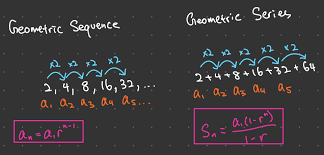 Geometric Sequence
x2 x2 x2 x2
2, 4, 8, 16, 32, ...
a₁ a₂ a₃ a₄ a₅...
aₙ = a₁rⁿ⁻¹
Geometric Series
x2 x2 x2 x2 x2
2 + 4 + 8 + 16 + 32 + 64
a₁ a₂ a₃ a₄ a₅
Sₙ = a₁(1-rⁿ)
1-r